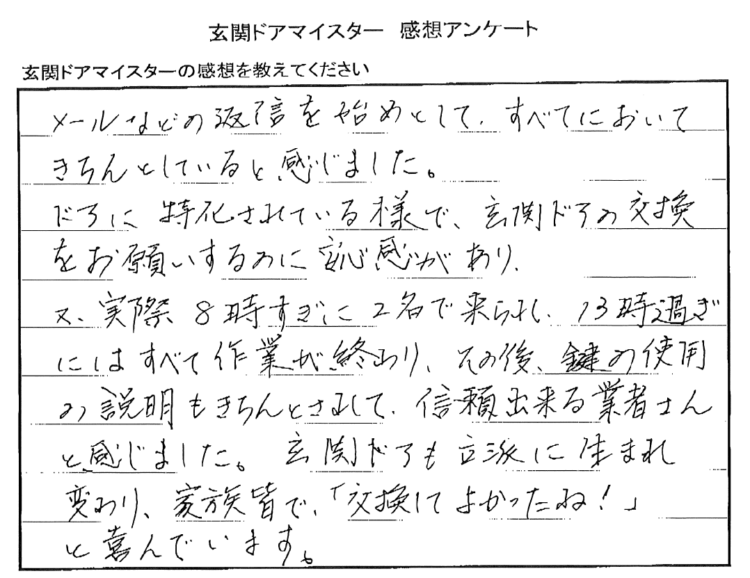 玄関ドアマイスター 感想アンケート
玄関ドアマイスターの感想を教えてください
メールなどの返信を始めとして、すべてにおいて
きちんとしていると感じました。
ドアに特化されている様で、玄関ドアの交換
をお願いするのに安心感があり、
又、実際8時すぎに2名で来られ、13時過ぎ
にはすべて作業が終わり、その後、鍵の使用
の説明もきちんとされして、信頼出来る業者さん
と感じました。玄関ドアも立派に生まれ
変わり、家族皆で、「交換してよかったね！」
と喜んでいます。